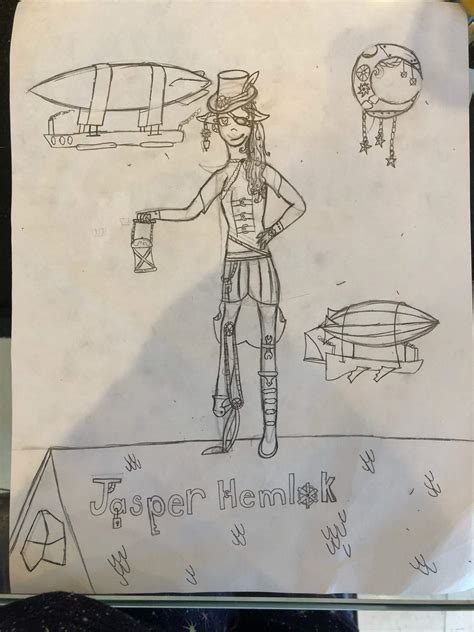 Jasper Hemlok